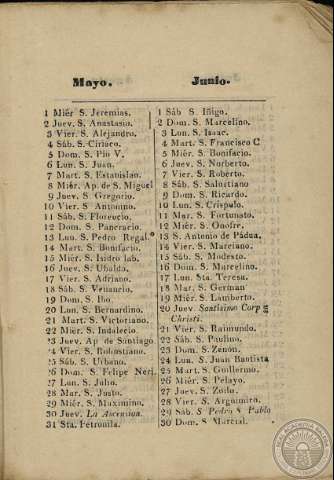 Mayo.
1 Miér S. Jeremias.
2 Juev. S. Anastasio.
3 Vier. S. Alejandro.
4 Sáb. S. Ciriaco.
5 Dom. S. Pio V.
6 Lun. S. Juan.
7 Mart. S. Estanislao.
8 Miér. Ap. de S. Miguel
9 Juev. S. Gregorio.
10 Vier. S. Antonino.
11 Sáb. S. Florencio.
12 Dom. S. Pancracio.
13 Lun. S. Pedro Regal.º
14 Mart. S. Bonifacio.
15 Miér. S. Isidro lab.
16 Juev. S. Ubaldo.
17 Vier. S. Adriano.
18 Sáb. S. Venancio.
19 Dom. S. Ibo.
20 Lun. S. Bernardino.
21 Mart. S. Victoriano.
22 Miér. S. Indalecio
23 Juev. Ap. de Santiago
24 Vier. S. Robustiano.
25 Sáb. S. Urbano.
26 Dom. S. Felipe Neri.
27 Lun. S. Julio.
28 Mar. S. Justo.
29 Miér. S. Maximino.
30 Juev. La Ascension.
31 Sta. Petronila.
Junio.
1 Sáb S. Iñigo.
2 Dom. S. Marcelino.
3 Lun. S. Isaac.
4 Mart. S. Francisco C
5 Miér. S. Bonifacio.
6 Juev. S. Norberto.
7 Vier. S. Roberto.
8 Sáb. S. Salustiano
9 Dom. S. Ricardo.
10 Lun. S. Crispulo.
11 Mar. S. Fortunato.
12 Miér. S. Onofre.
13 S. Antonio de Pádua.
14 Vier. S. Marciano.
15 Sáb. S. Modesto.
16 Dom. S. Marcelino.
17 Lun. Sta. Teresa.
18 Mar. S. German
19 Miér. S. Lamberto.
20 Juev. Santisimo Corp
Christi.
21 Vier. S. Raimundo.
22 Sáb. S. Paulino.
23 Dom. S. Zenon.
24 Lun. S. Juan Bautista
25 Mart. S. Guillermo.
26 Miér. S. Pelayo.
27 Juev. S. Zoilo.
28 Vier. S. Argimiro.
29 Sáb. S Pedro S Pablo
30 Dom S. Marcial.